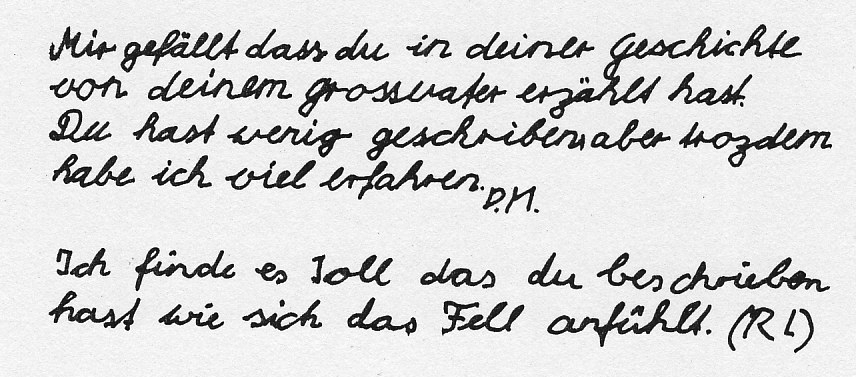 Mir gefällt dass du in deiner Geschichte
von deinem grossvater erzählt hast.
Du hast wenig geschriben, aber trozdem
habe ich viel erfahren.
D.H.
Ich finde es Toll das du beschrieben
hast wie sich das Fell anfühlt. (R L)